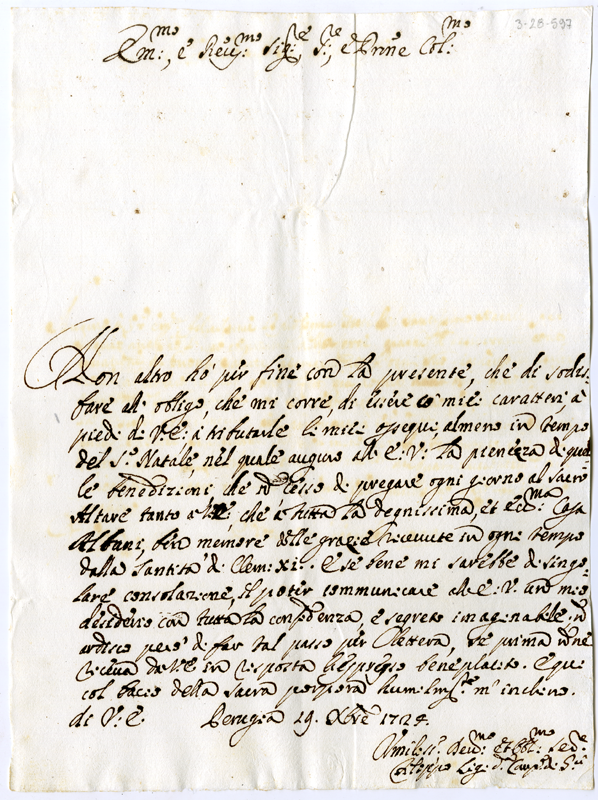 3-28-597
Em:mo, e Rev:mo Sig:re, S:re, e Prñe Col:mo
Non altro hò per fine con la presente, che di sodis-
fare all' obligo, che mi corre, di essere cò miei caratteri, a'
piedi di V: E: à tributarle li miei ossequi, almeno in tempo
del S:o Natale, nel quale auguro all' E: V: la pienezza di quel-
le benedizioni, che nò cesso di pregare ogni giorno al sacro
Altare tanto a lei, che à tutta la degnissima, et Ecc:ma Casa
Albani, ben memore delle grazie ricevute in ogni tempo
dalla Santità di Clem: xi. E se bene mi sarebbe di singo-
lare consolazione, il poter communicare all' E: V: un mio
desiderio con tutta la confidenza, e segreto imaginabile, nò
ardisco però di far tal passo per lettera, se prima nò ne
riceva da V: E: in risposta l'espresso beneplacito. E qui
col bacio della sacra porpora humilm:te m' inchino.
di V: E. Perugia 29. Xbre 1724
Umiliss: Dev:mo et Obl:mo Ser:e